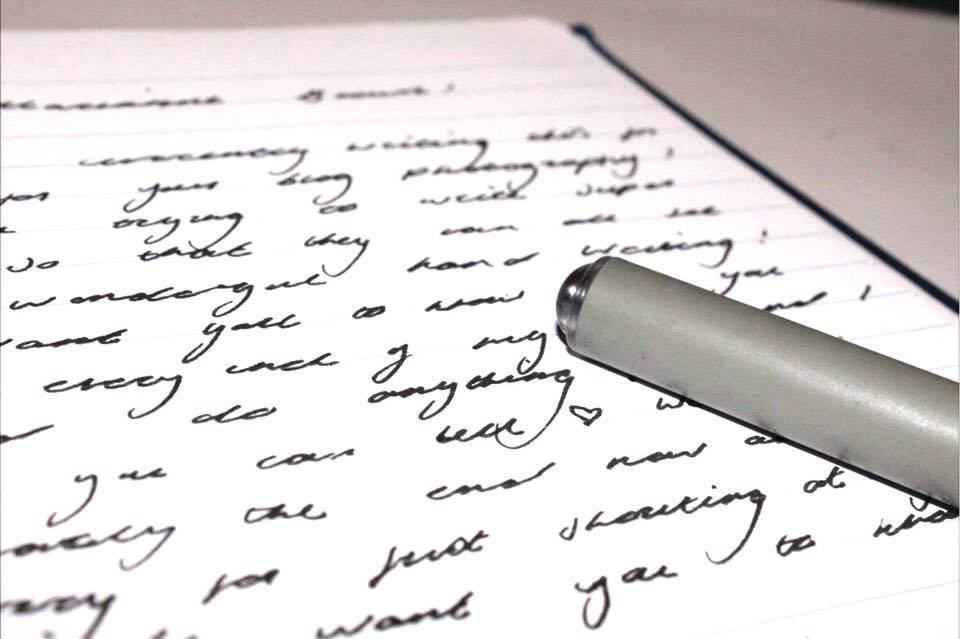 currently writing this for
your blog photography!
trying to write super
so that they can all see
wonderful hand writing!
want you to know you
every inch of my !
do anything
you can tell ♡
the end now
sorry for just shouting at
want you to know